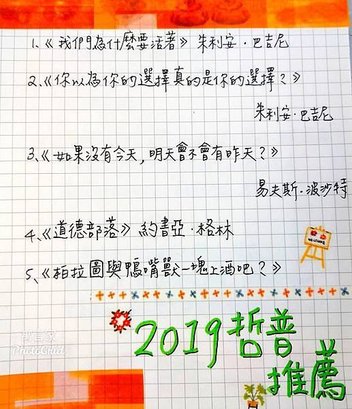 1、《我們為什麼要活著》朱利安·巴吉尼
2、《你以為你的選擇真的是你的選擇？》
朱利安·巴吉尼
3、《如果沒有今天，明天會不會有昨天？》
易夫斯·波沙特
4、《道德部落》約書亞·格林
5、《柏拉圖與鴨嘴獸一塊上酒吧？》
2019哲普
推薦